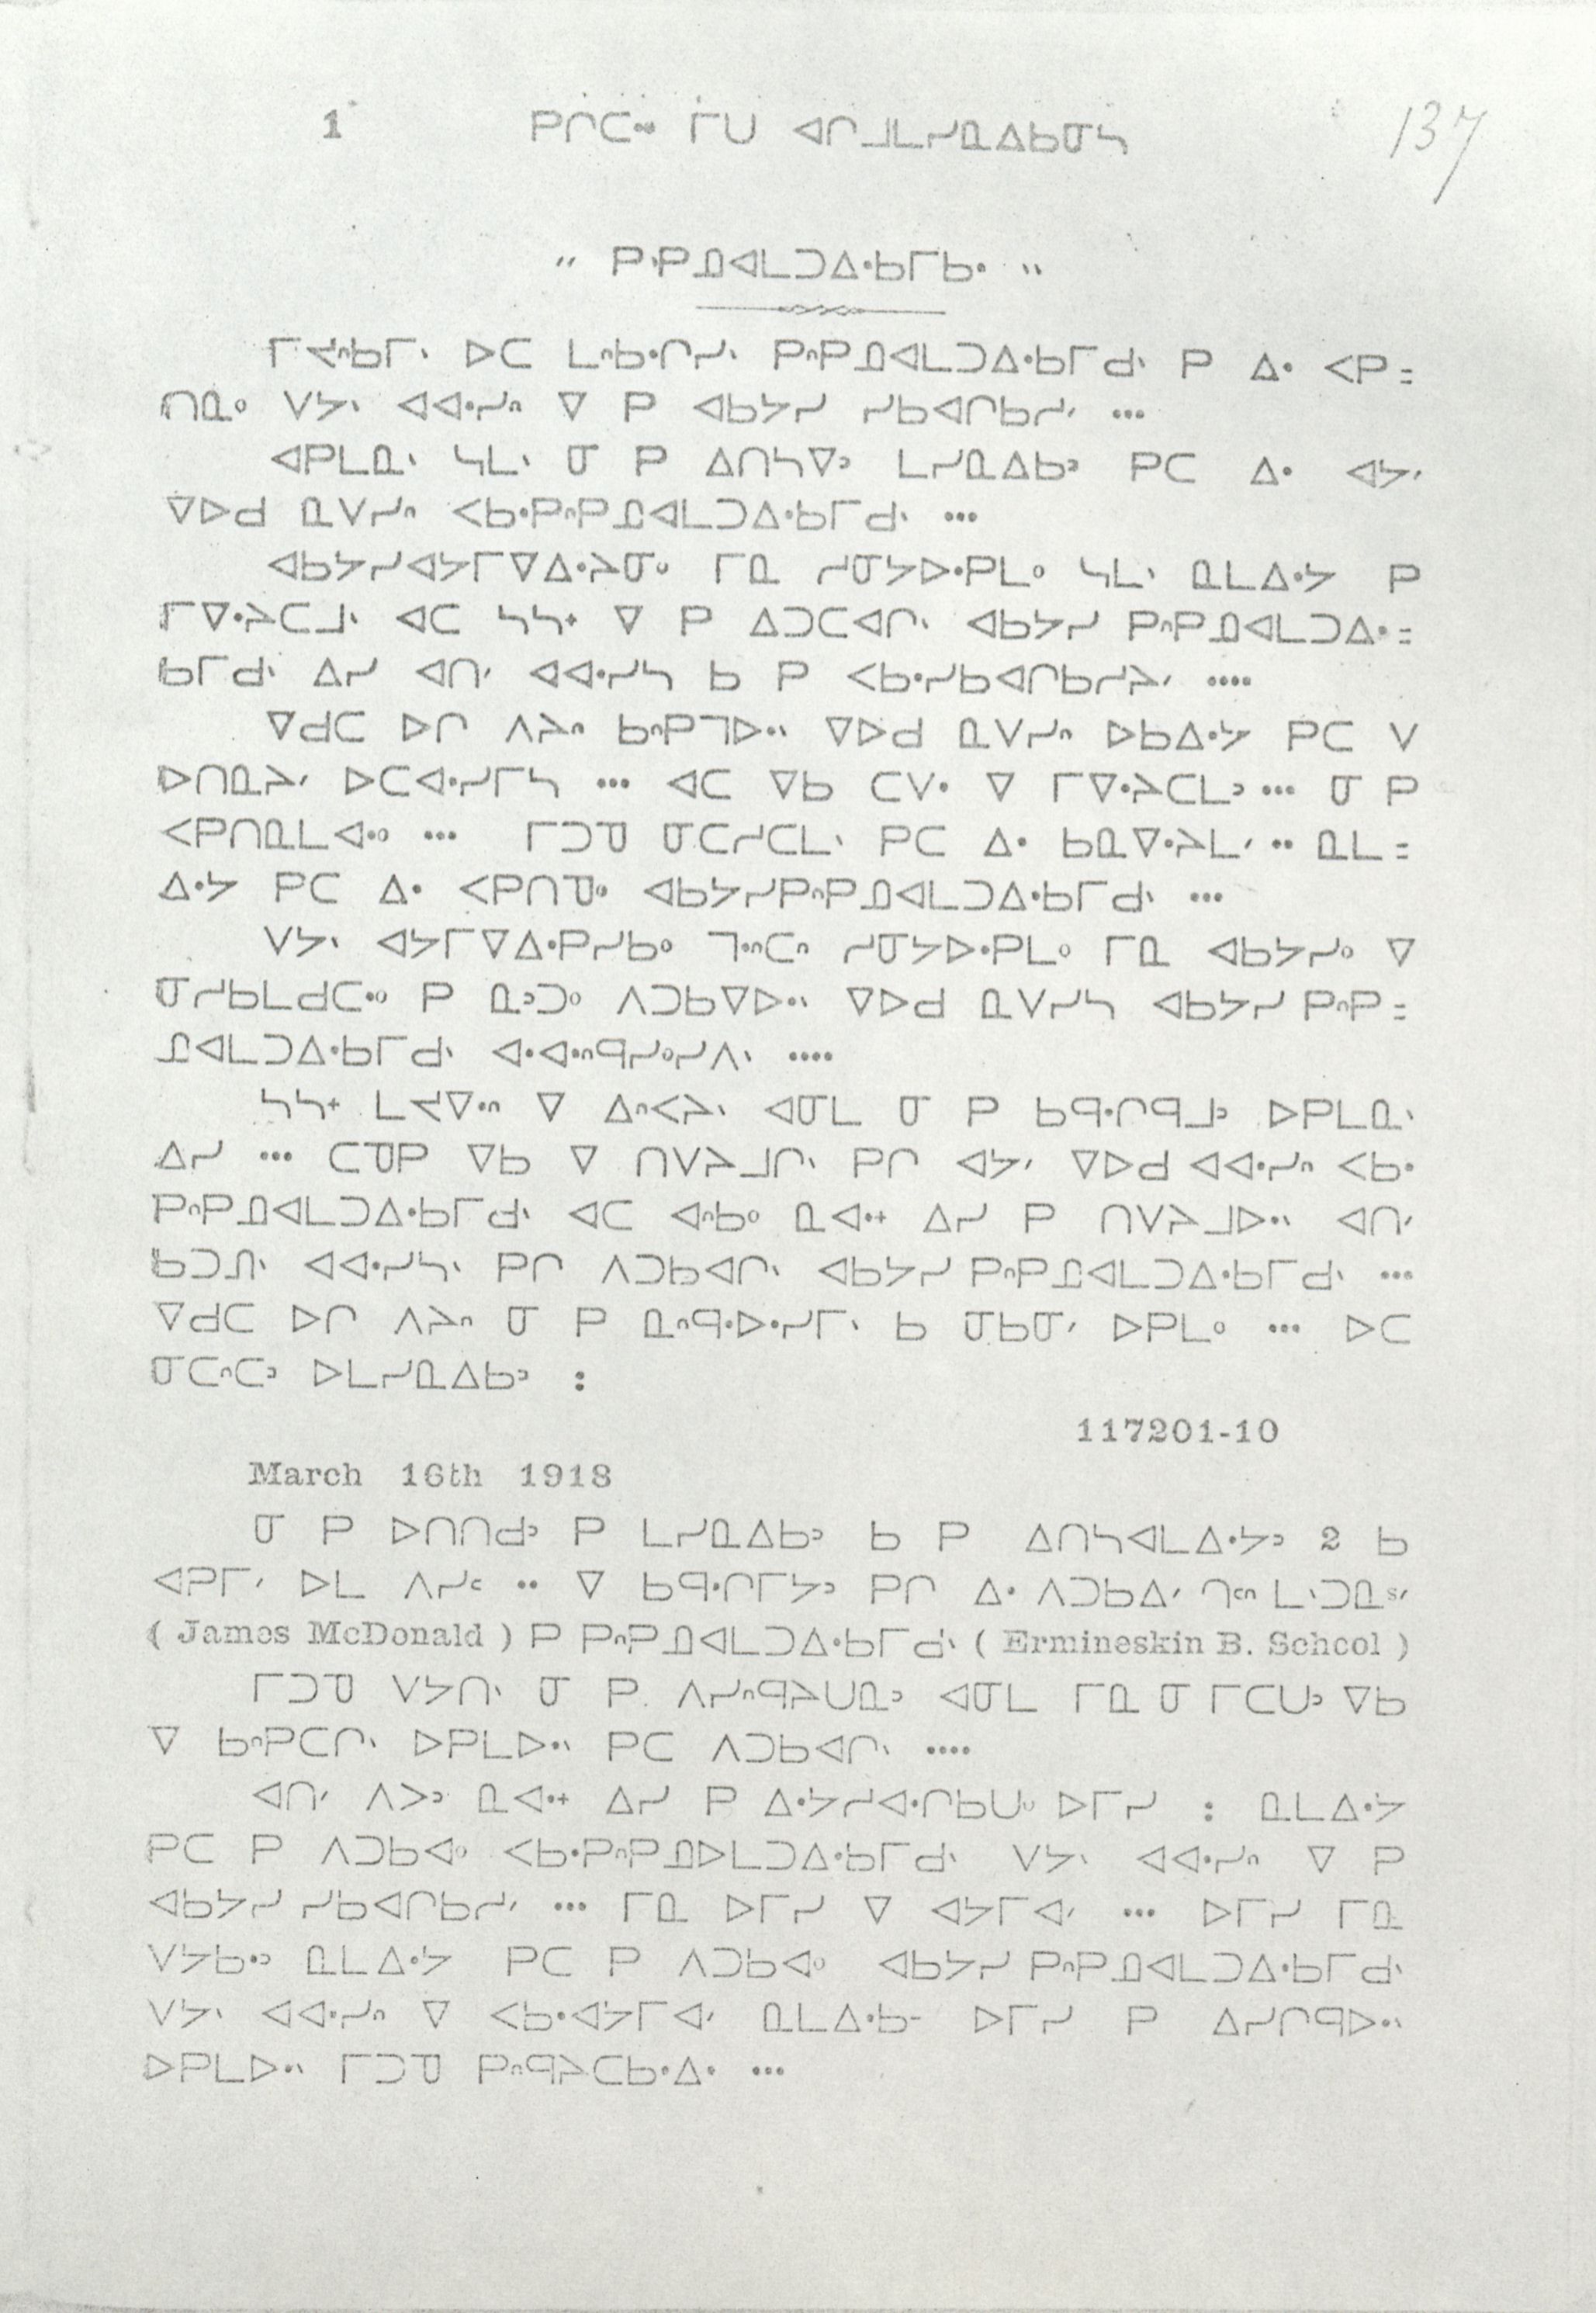 1 ᑭᒋᑕᐤ ᒥᑌ ᐊᒋᒧᒪᓯᓇᐃᑲᓂᓴ 137
" ᑭᐢᑭᓄᐊᒪᑐᐃᐧᑲᒥᑲᐧ "
ᒥᔭᐢᑲᒥᐠ ᐅᑕ ᒪᐢᑲᐧᒋᓯᐠ ᑭᐢᑭᓄᐊᒪᑐᐃᐧᑲᒥᑯᐠ ᑭ ᐃᐧ ᐸᑭ =
ᑎᓇᐤ ᐯᔭᐠ ᐊᐊᐧᓯᐢ ᐁ ᑭ ᐊᑲᔭᓯ ᓯᑲᐊᒋᑲᓱᐟ ...
ᐊᑭᒪᓇᐠ ᓴᒪᐠ ᓂ ᑭ ᐃᑎᓴᐁᐣ ᒪᓯᓇᐃᑲᐣ ᑭᑕ ᐃᐧ ᐊᔭᐟ
ᐁᐅᑯ ᓇᐯᓯᐢ ᐸᑲᐧᑭᐢᑭᓄᐊᒪᑐᐃᐧᑲᒥᑯᐠ ...
ᐊᑲᔭᓯᐊᔭᒥᐁᐃᐧᔨᓂᐤ ᒥᓇ ᓱᓂᔭᐅᐧᑭᒪᐤ ᓴᒪᐠ ᓇᒪᐃᐧᔭ ᑭ
ᒥᐁᐧᔨᑕᒧᐠ ᐊᑕ ᓴᓴᕀ ᐁ ᑭ ᐃᑐᑕᐊᒋᐠ ᐊᑲᔭᓯ ᑭᐢᑭᓄᐊᒪᑐᐃᐧ =
ᑲᒥᑯᐠ ᐃᓯ ᐊᑎᐟ ᐊᐊᐧᓯᓴ ᑲ ᑭ ᐸᑲᐧᓯᑲᐊᒋᑲᓱᔨᐟ ....
ᐁᑯᑕ ᐅᒋ ᐱᔨᐢ ᑲᐢᑭᒣᐅᐧᐠ ᐁᐅᑯ ᓇᐯᓯᐢ ᐅᑲᐃᐧᔭ ᑭᑕ ᐯ
ᐅᑎᓇᔨᐟ ᐅᑕᐊᐧᓯᒥᓴ ... ᐊᑕ ᐁᑲ ᑕᐯᐧ ᐁ ᒥᐁᐧᔨᑕᒪᐣ ... ᓂ ᑭ
ᐸᑭᑎᓇᒪᐊᐧᐤ ... ᒥᑐᓀ ᓂᑕᓱᑕᒪᐠ ᑭᑕ ᐃᐧ ᑲᓇᐁᐧᔨᒪᐟ .. ᓇᒪ =
ᐃᐧᔭ ᑭᑕ ᐃᐧ ᐸᑭᑎᓀᐤ ᐊᑲᔭᓯᑭᐢᑭᓄᐊᒪᑐᐃᐧᑲᒥᑯᐠ ...
ᐯᔭᐠ ᐊᔭᒥᐁᐃᐧᑭᓯᑲᐤ ᒣᐧᐢᑕᐢ ᓱᓂᔭᐅᐧᑭᒪᐤ ᒥᓇ ᐊᑲᔭᓯᐤ ᐁ
ᓂᓱᑲᒪᑯᑕᐧᐤ ᑭ ᓇᐣᑐᐤ ᐱᑐᑲᐁᐅᐧᐠ ᐁᐅᑯ ᓇᐯᓯᓴ ᐊᑲᔭᓯ ᑭᐢᑭ =
ᓄᐊᒪᑐᐃᐧᑲᒥᑯᐠ ᐊᐧᐊᐧᐢᑫᓯᐤᓯᐱᐠ ....
ᓴᓴᕀ ᒪᔭᐁᐧᐢ ᐁ ᐃᐢᐸᔨᐠ ᐊᓂᒪ ᓂ ᑭ ᑲᑫᐧᒋᑫᒧᐣ ᐅᑭᒪᓇᐠ
ᐃᓯ ... ᑕᓀᑭ ᐁᑲ ᐁ ᑎᐯᔨᒧᒋᐠ ᑭᒋ ᐊᔭᐟ ᐁᐅᑯ ᐊᐊᐧᓯᐢ ᐸᑲᐧ
ᑭᐢᑭᓄᐊᒪᑐᐃᐧᑲᒥᑯᐠ ᐊᑕ ᐊᐢᑲᐤ ᓇᐊᐧᕀ ᐃᓯ ᑭ ᑎᐯᔨᒧᐅᐧᐠ ᐊᑎᐟ
ᑲᑐᓄᐠ ᐊᐊᐧᓯᓴᐠ ᑭᒋ ᐱᑐᑲᐊᒋᐠ ᐊᑲᔭᓯ ᑭᐢᑭᓄᐊᒪᑐᐃᐧᑲᒥᑯᐠ ...
ᐁᑯᑕ ᐅᒋ ᐱᔨᐢ ᓂ ᑭ ᓇᐢᑫᐧᐅᐧᓯᒥᐠ ᑲ ᓂᑲᓂᐟ ᐅᑭᒪᐤ ... ᐅᑕ
ᓂᑕᐢᑕᐣ ᐅᒪᓯᓇᐃᑲᐣ :
117201-10
March 16th 1918
ᓂ ᑭ ᐅᑎᑎᑯᐣ ᑭ ᒪᓯᓇᐃᑲᐣ ᑲ ᑭ ᐃᑎᓴᐊᒪᐃᐧᔭᐣ 2 ᑲ
ᐊᑭᒥᐟ ᐅᒪ ᐱᓯᒼ .. ᐁ ᑲᑫᐧᒋᒥᔭᐣ ᑭᒋ ᐃᐧ ᐱᑐᑲᐃᐟ
( James McDonald ) ᑭ ᑭᐢᑭᓄᐊᒪᑐᐃᐧᑲᒥᑯᐠ ( Ermineskin B. School )
ᒥᑐᓀ ᐯᔭᑎᐠ ᓂ ᑭ ᐱᓯᐢᑫᔨᑌᓇᐣ ᐊᓂᒪ ᒥᓇ ᓂ ᒥᑕᑌᐣ ᐁᑲ
ᐁ ᑲᐢᑭᑕᒋᐠ ᐅᑭᒪᐅᐧᐠ ᑭᑕ ᐱᑐᑲᐊᒋᐠ ....
ᐊᑎᐟ ᐱᐳᐣ ᓇᐊᐧᕀ ᐃᓯ ᑭ ᐃᐧᔭᓱᐊᐧᒋᑲᑌᐤ ᐅᒥᓯ : ᓇᒪᐃᐧᔭ
ᑭᑕ ᑭ ᐱᑐᑲᐊᐤ ᐸᑲᐧᑭᐢᑭᓄᐅᒪᑐᐃᐧᑲᒥᑯᐠ ᐯᔭᐠ ᐊᐊᐧᓯᐢ ᐁ ᑭ
ᐊᑲᔭᓯ ᓯᑲᐊᒋᑲᓱᐟ ... ᒥᓇ ᐅᒥᓯ ᐁ ᐊᔭᒥᐊᐟ ... ᐅᒥᓯ ᒥᓇ
ᐯᔭᑲᐧᐣ ᓇᒪᐃᐧᔭ ᑭᑕ ᑭ ᐱᑐᑲᐊᐤ ᐊᑲᔭᓯ ᑭᐢᑭᓄᐊᒪᑐᐃᐧᑲᒥᑯᐠ
ᐯᔭᐠ ᐊᐊᐧᓯᐢ ᐁ ᐸᑲᐧᐊᔭᒥᐊᐟ ᓇᒪᐃᐧᑲᐨ ᐅᒥᓯ ᑭ ᐃᓯᒋᑫᐅᐧᐠ
ᐅᑭᒪᐅᐧᐠ ᒥᑐᓀ ᑭᐢᑫᔨᑕᑲᐧᐃᐧ ...